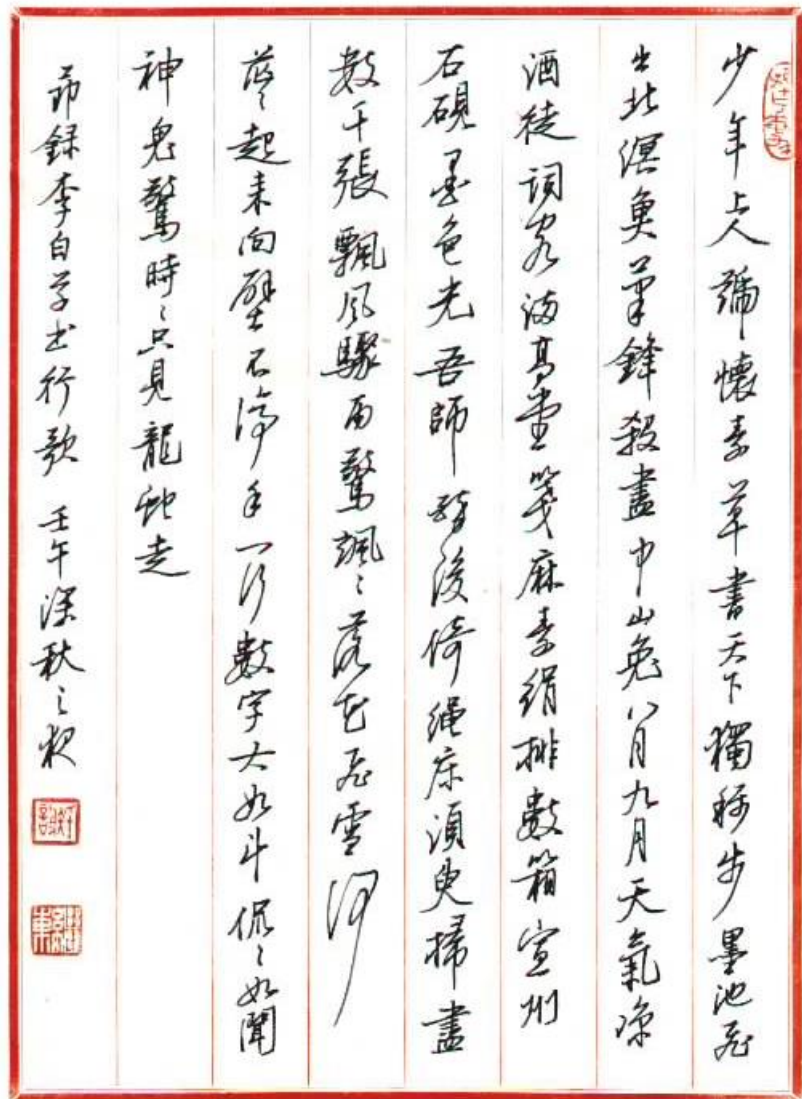 少年上人號懷素草書天下獨稱步墨池飛
出北溟魚筆鋒殺盡中山兔八月九月天氣涼
酒徒詞客滿高堂箋麻素絹排數箱宣州
石硯墨色光吾師醉後倚繩床須臾掃盡
數千張飄風驟雨驚颯〻落花飛雪何
茫〻起來向壁不停手一行數字大如斗怳〻如聞
神鬼驚時〻只見龍蛇走
節錄李白草書行歌 壬午深秋之夜